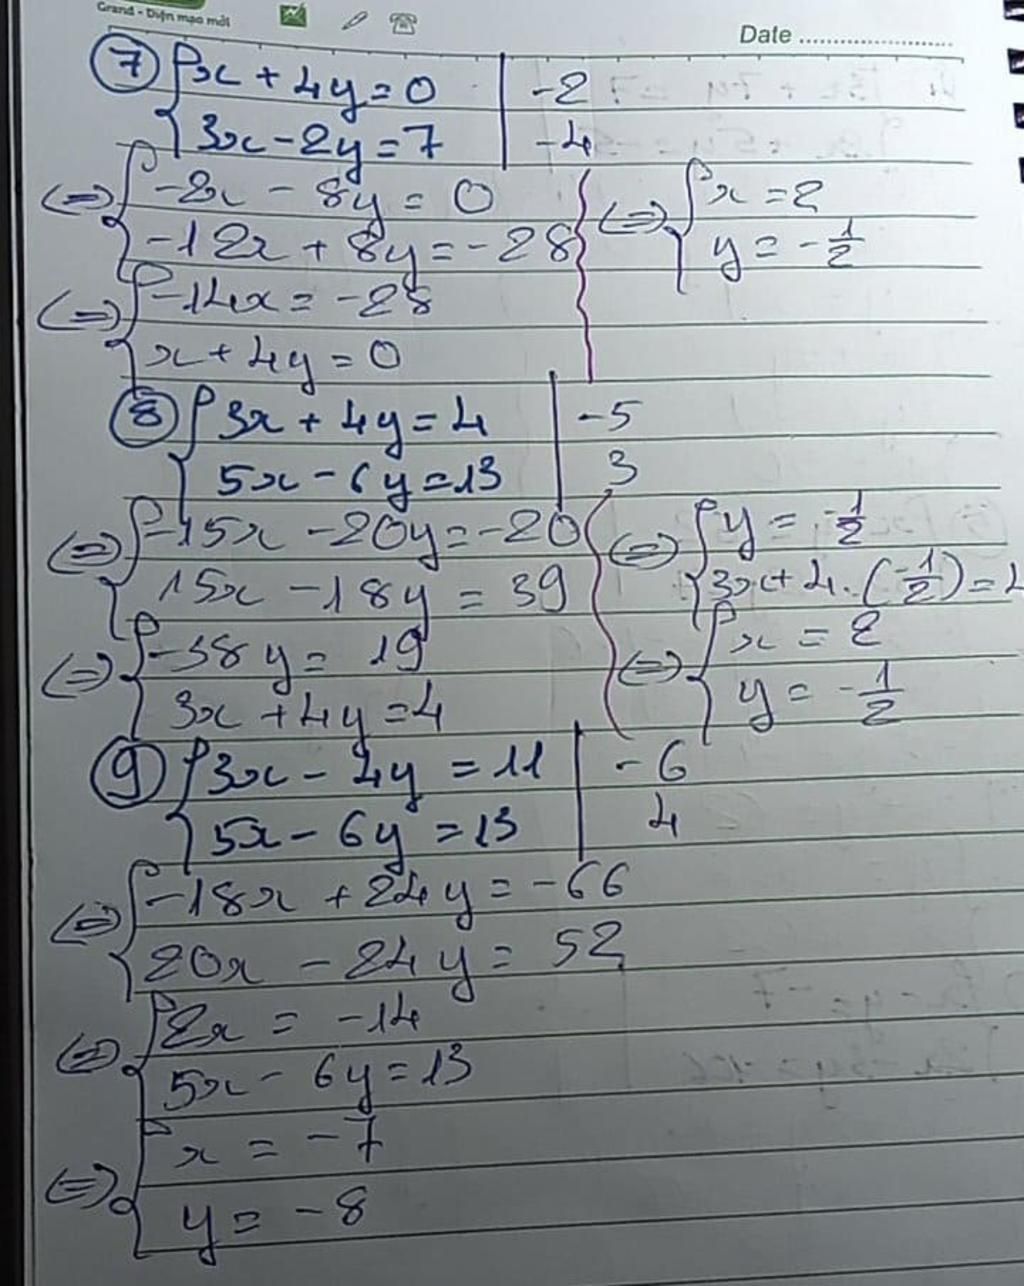 Grand - Diện mạo mới
Date
⑦ { x + 4y = 0 | -2
{ 3x - 2y = 7 | -4
⇔ { -2x - 8y = 0
{ -12x + 8y = -28
⇔ { -14x = -28
{ x + 4y = 0
⇔ { x = 2
{ y = -1/2
⑧ { 3x + 4y = 4 | -5
{ 5x - 6y = 13 | 3
⇔ { -15x - 20y = -20
{ 15x - 18y = 39
⇔ { -38y = 19
{ 3x + 4y = 4
⇔ { y = -1/2
{ 3x + 4.(-1/2) = 4
⇔ { x = 2
{ y = -1/2
⑨ { 3x - 4y = 11 | -6
{ 5x - 6y = 13 | 4
⇔ { -18x + 24y = -66
{ 20x - 24y = 52
⇔ { 2x = -14
{ 5x - 6y = 13
⇔ { x = -7
{ y = -8